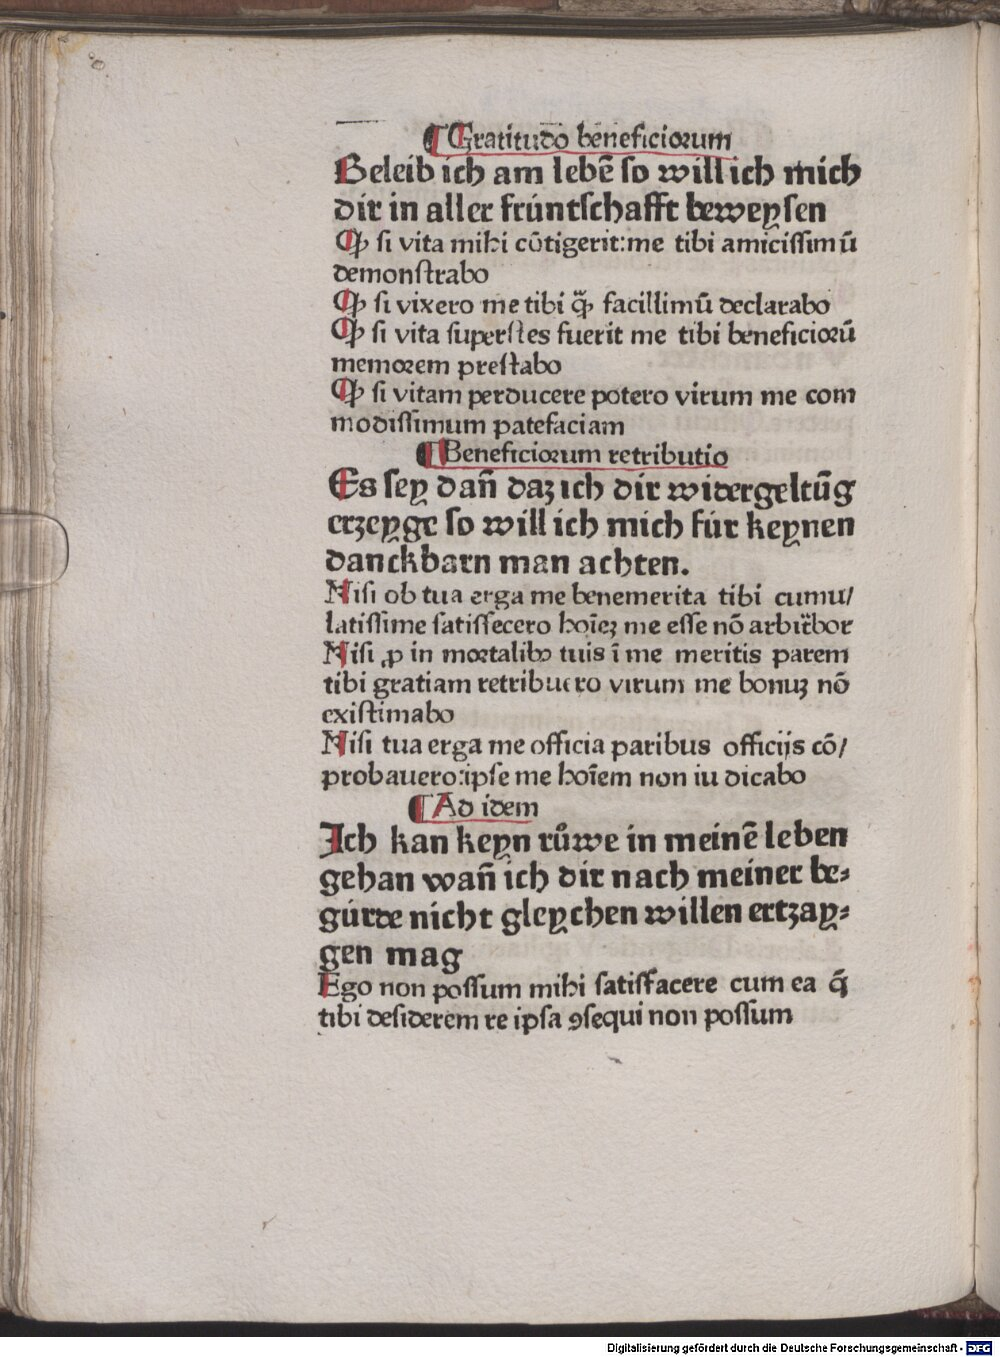 ¶ Gratitudo beneficioꝛum
Beleib ich am lebē so will ich mich
dir in aller frúntschafft beweysen
Ꝙ si vita mihi cōtigerit:me tibi amicissimū
demonstrabo
Ꝙ si vixero me tibi ꝙ̈ facillimū declarabo
Ꝙ si vita superstes fuerit me tibi beneficioꝛū
memoꝛem prestabo
Ꝙ si vitam perducere potero virum me com
modissimum patefaciam
¶ Beneficioꝛum retributio
Es sey dan̄ daz ich dir widergeltūg
erzeyge so will ich mich fúr keynen
danckbarn man achten.
Nisi ob tua erga me benemerita tibi cumu/
latissime satisfecero hoīeꝫ me esse nō arbitᷣbor
Nisi ꝓ in moꝛtalibꝰ tuis ī me meritis parem
tibi gratiam retribuero virum me bonuꝫ nō
existimabo
Nisi tua erga me officia paribus officijs cō/
probauero:ipse me hoīem non iu dicabo
¶ Ad idem
Ich kan keyn růwe in meinē leben
gehan wan̄ ich dir nach meiner be⸗
gúrde nicht gleychen willen ertzay⸗
gen mag
Ego non possum mihi satisfacere cum ea q̄
tibi desiderem re ipsa ꝯsequi non possum
Digitalisierung gefördert durch die Deutsche Forschungsgemeinschaft - DFG